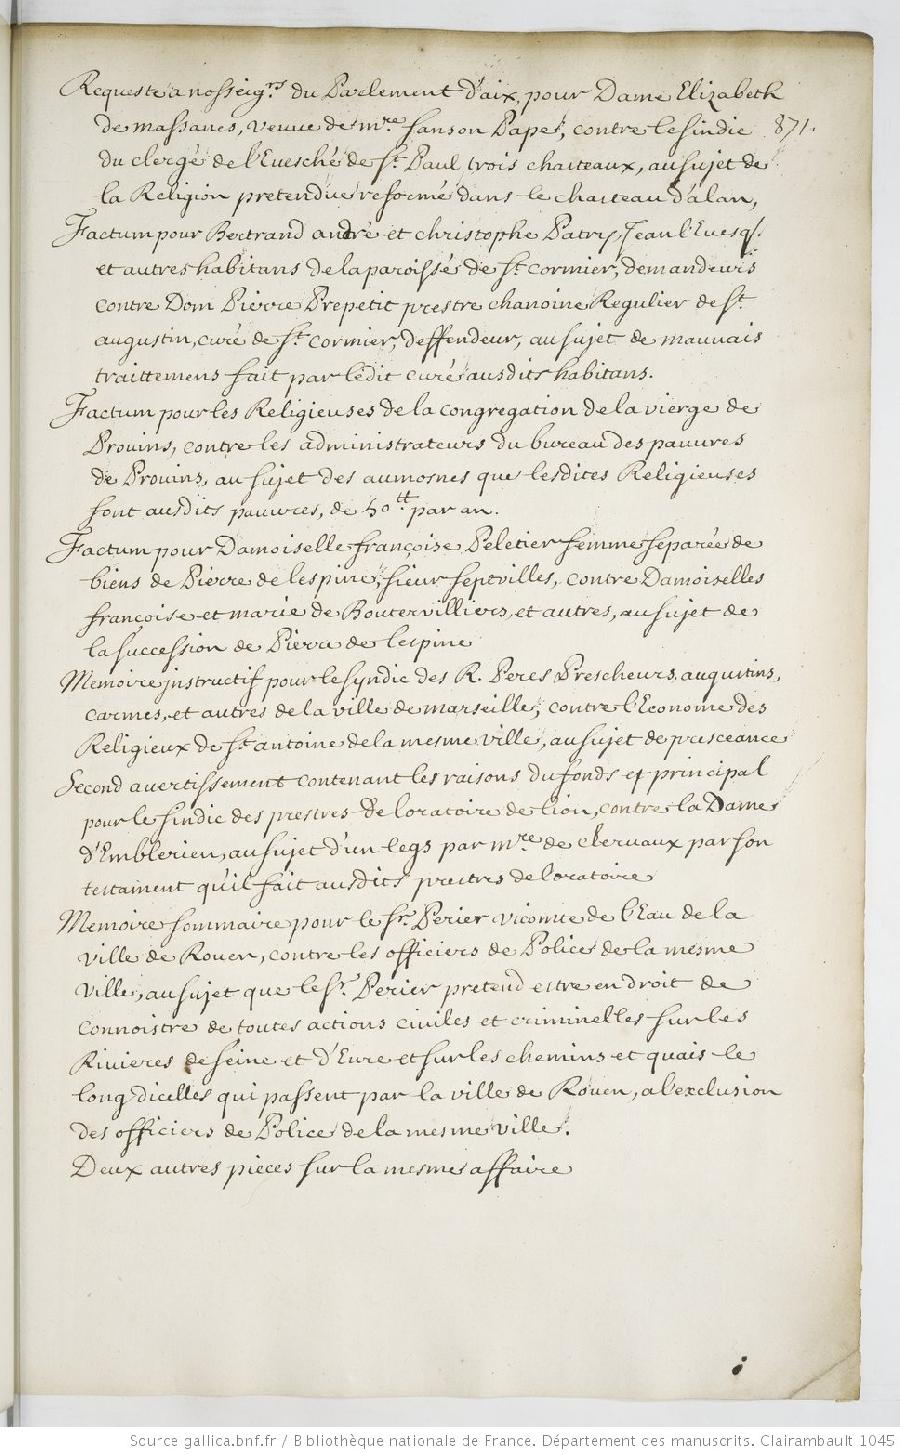 Requeste a nosseigrs du Parlement d'aix, pour Dame Elizabeth
de massanes, veuve de mre sanson Pape, contre le sindic 871.
du clergé de l'Evesché de st Paul trois chasteaux, au sujet de
la Religion pretendue reformé dans le chasteau d'alan,
Factum pour Bertrand andré et christophe Patry, Jean l'Evesq.
et autres habitans de la paroisse de st cormier, demandeurs
contre Dom Pierre Prepetit prestre chanoine Regulier de st
augustin, curé de st cormier, deffendeur, au sujet de mauvais
traittemens fait par ledit curé ausdits habitans.
Factum pour les Religieuses de la congregation de la vierge de
Provins, contre les administrateurs du bureau des pauvres
de Provins, au sujet des aumosnes que lesdites Religieuses
font ausdits pauvres, de 50tt par an.
Factum pour Damoiselle françoise Peletier femme separée de
biens de Pierre de lespine, sieur septvilles, contre Damoiselles
françoise et marie de Boutervilliers, et autres, au sujet de
la succession de Pierre de lespine
Memoire instructif pour le syndic des R. Peres Prescheurs, augustins,
carmes, et autres de la ville de marseille, contre l'Econome des
Religieux de st antoine de la mesme ville, au sujet de presceance
Second avertissement contenant les raisons du fonds et principal
pour le sindic des prestres de loratoire de lion, contre la Dame
d'Emblerieu, au sujet d'un legs par mre de clervaux par son
testament qu'il fait ausdits prestres de loratoire
Memoire sommaire pour le sr Perier vicomte de l'Eau de la
ville de Rouen, contre les officiers de Police de la mesme
ville, au sujet que le sr. Perier pretend estre en droit de
connoistre de toutes actions civiles et criminelles sur les
Rivieres de seine et d'Eure et sur les chemins et quais le
long dicelles qui passent par la ville de Rouen, a l'exclusion
des officiers de Police de la mesme ville.
Deux autres pieces sur la mesme affaire
Source gallica.bnf.fr / Bibliothèque nationale de France. Département des manuscrits. Clairambault 1045